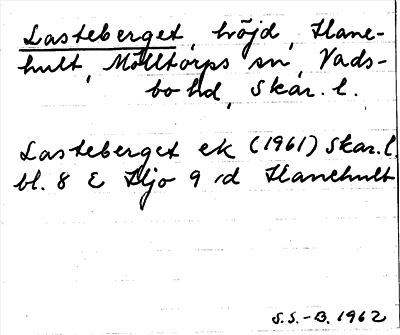 Lasteberget, höjd, Hane-
hult, Mölltorps sn, Vads-
bo hd, Skar. l.
Lasteberget ek (1961) Skar. l.
bl. 8 E Hjo 9 id Hanehult
S.S.-B. 1962